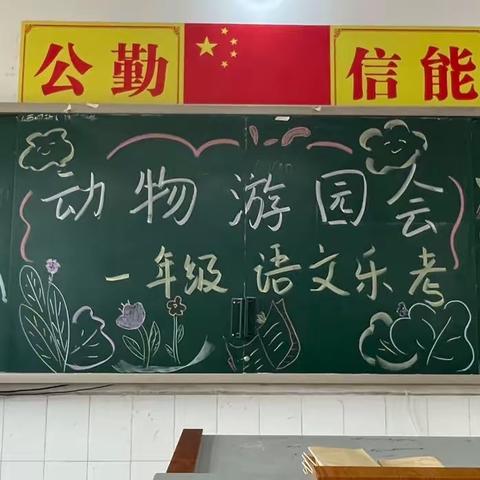 公勤 信能
动物游园会
一年级 语文乐考